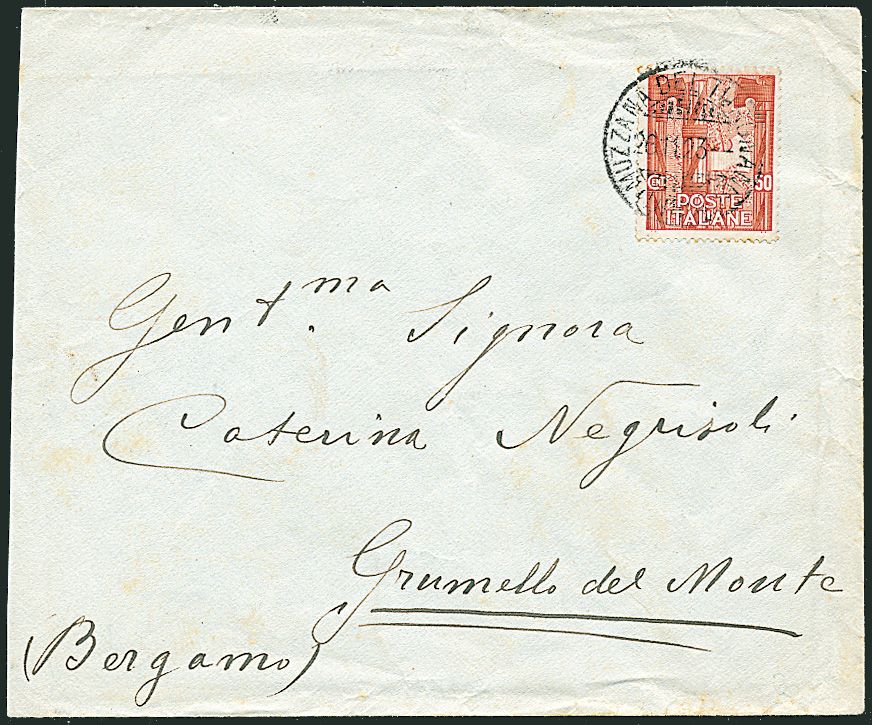 MUZZANA DEL
CENT 50
POSTE
ITALIANE
Gent.ma Signora
Caterina Negrisoli
Grumello del Monte
(Bergamo)